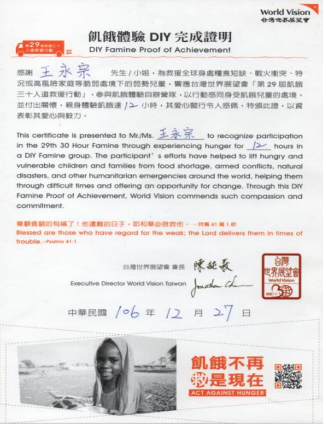 World Vision
台灣世界展望會
飢餓體驗 DIY 完成證明
DIY Famine Proof of Achievement
感謝 王永宗 先生/小姐,為救援全球身處糧食短缺、戰火衝突、特
況或高風險家庭等脆弱處境下的弱勢兒童,響應台灣世界展望會「第 29 屆飢餓
三十人道救援行動」,參與飢餓體驗自辦營隊,以行動感同身受飢餓兒童的處境,
並付出關懷,親身體驗飢餓達 12 小時,其愛心關行令人感佩,特頒此證,以資
表彰其愛心與毅力。
This certificate is presented to Mr./Ms. 王永宗 to recognize participation
in the 29th 30 Hour Famine through experiencing hunger for 12 hours in
a DIY Famine group. The participant's efforts have helped to lift hungry and
vulnerable children and families from food shortage, armed conflicts, natural
disasters, and other humanitarian emergencies around the world, helping them
through difficult times and offering an opportunity for change. Through this DIY
Famine Proof of Achievement, World Vision commends such compassion and
commitment.
眷顧貧窮的有福了!他遭難的日子,耶和華必搭救他。—詩篇 41 篇 1 節
Blessed are those who have regard for the weak; the Lord delivers them in times of
trouble. –Psalms 41:1
台灣世界展望會 會長
Executive Director World Vision Taiwan
台灣
世界展望會
World Vision
中華民國 106 年 12 月 27 日
飢餓不再
救是現在
ACT AGAINST HUNGER